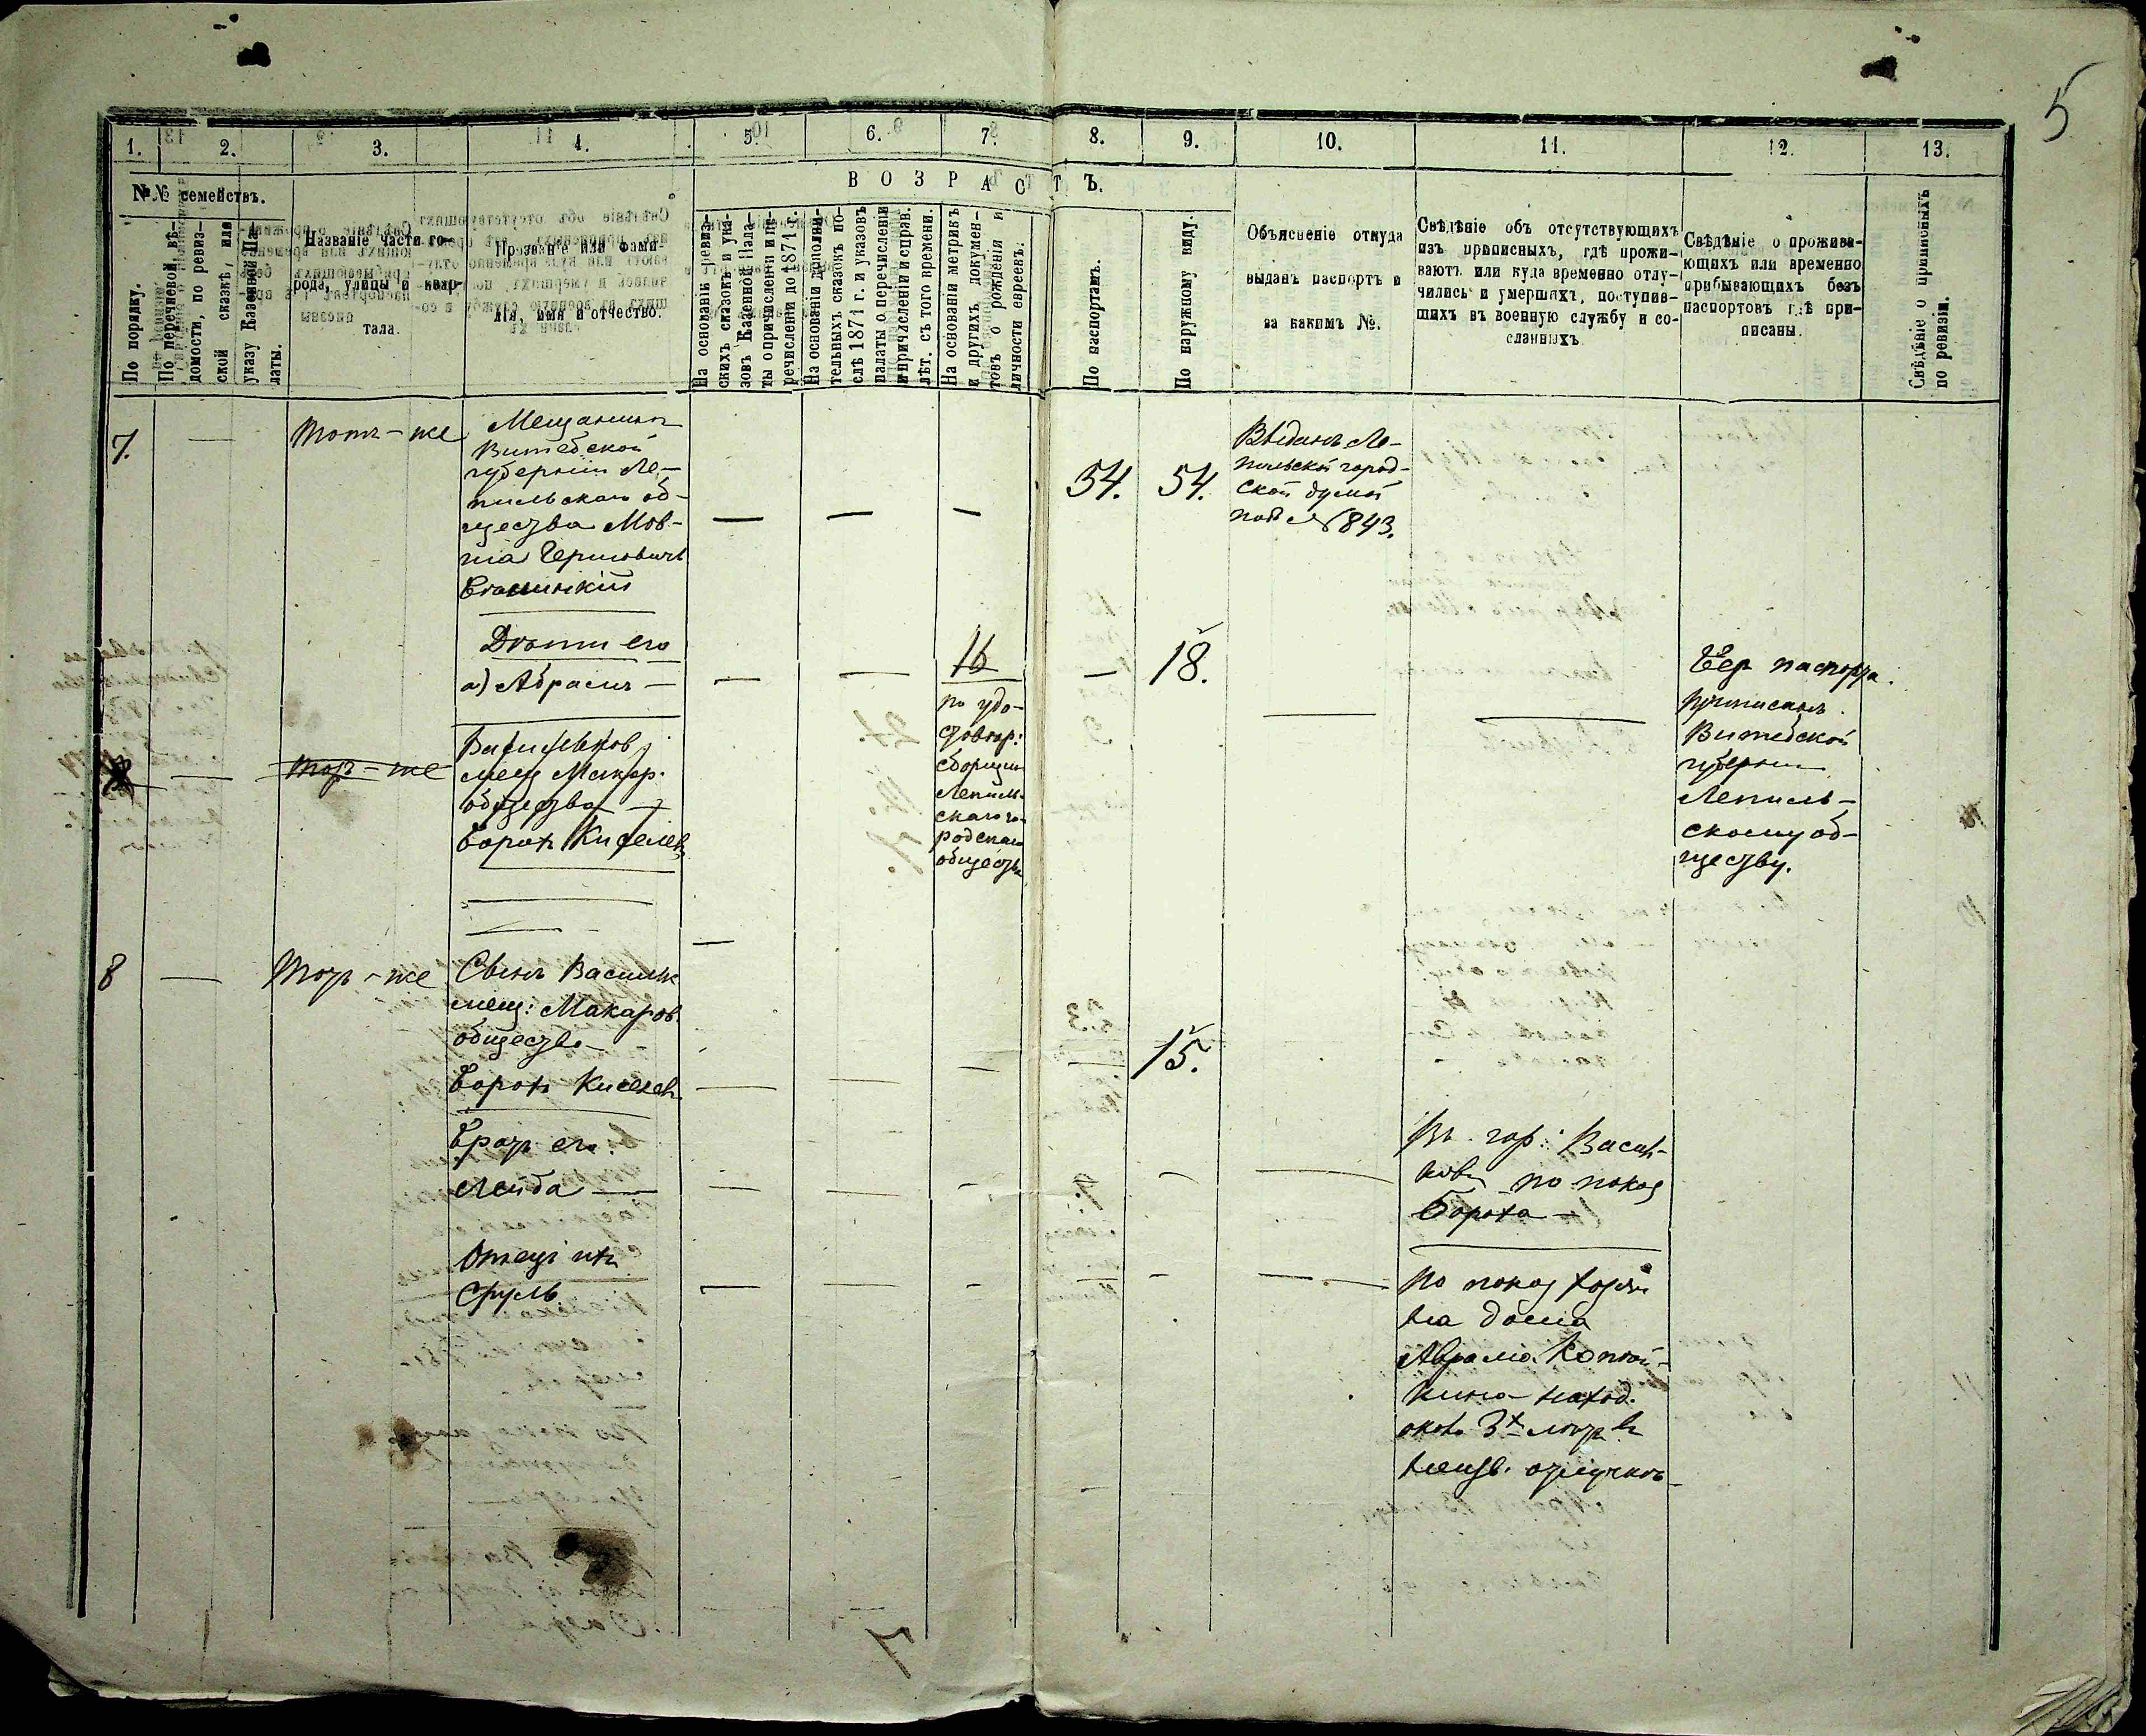 5
1.
2.
3.
4.
5.
6.
7.
8.
9.
10.
11.
12.
13.
№№ семействъ.
ВОЗРАСТЪ.
По порядку.
По перечневой вѣ-
домости, по ревиз-
ской сказкѣ, или
указу Казенной Па-
латы.
Названіе части го-
рода, улицы и квар-
тала.
Прозваніе или фами-
лія, имя и отчество.
На основаніи ревиз-
скихъ сказокъ и ука-
зовъ Казенной Пала-
ты о причисленіи и пе-
речисленіи до 1871 г.
На основаніи дополни-
тельныхъ сказокъ по-
слѣ 1871 г. и указовъ
палаты о перечисленіи
и причисленіи и справ.
лѣт. съ того времени.
На основаніи метрикъ
и другихъ докумен-
товъ о рожденіи и
личности евреевъ.
По паспортамъ.
По наружному виду.
Объясненіе откуда
выданъ паспортъ и
за какимъ №.
Свѣдѣніе объ отсутствующихъ
изъ приписныхъ, гдѣ прожи-
ваютъ или куда временно отлу-
чились и умершихъ, поступив-
шихъ въ военную службу и со-
сланныхъ
Свѣдѣніе о прожива-
ющихъ или временно
прибывающихъ безъ
паспортовъ гдѣ при-
писаны.
Свѣдѣніе о приписныхъ
по ревизіи.
7.
—
Тотъ-же
Мещанинъ
Витебской
губерніи Ле-
пильскаго об-
щества Мов-
ша
— — —
54. 54.
Выданъ Ле-
пильской город-
ской думой
подъ №843.
его
а) Абрамъ —
— —
16
по удо-
стовѣр:
сборщик
Лепиль-
скаго го-
родскаго
обществ
— 18.
— —
Без паспорта.
приписанъ
Витебской
губерніи
Лепиль-
скому об-
ществу.
— Тотъ-же
Васильков
мещ Макар.
общества —
Борохъ Киселевъ
8
—
Тотъ-же
Сынъ Васильк
мещ: Макаров.
общества
Борохъ Киселевъ
— — —
— 15.
Братъ его.
Лейба —
— — —
Въ гор: Василь-
кове по показ
Бороха —
Отецъ ихъ
Сруль
— — —
По показ хозяи
на дома
Аврама
наход.
около 3х лѣтъ въ
неизв. отлучкѣ
7